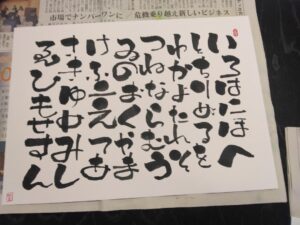 市場でナンバーワンに
危機乗り越え新しいビジネス
いろはにほへ
とちりぬるを
わかよたれそ
つねならむう
ゐのおくやま
けふこえてあ
さきゆめみし
ゑひもせすん